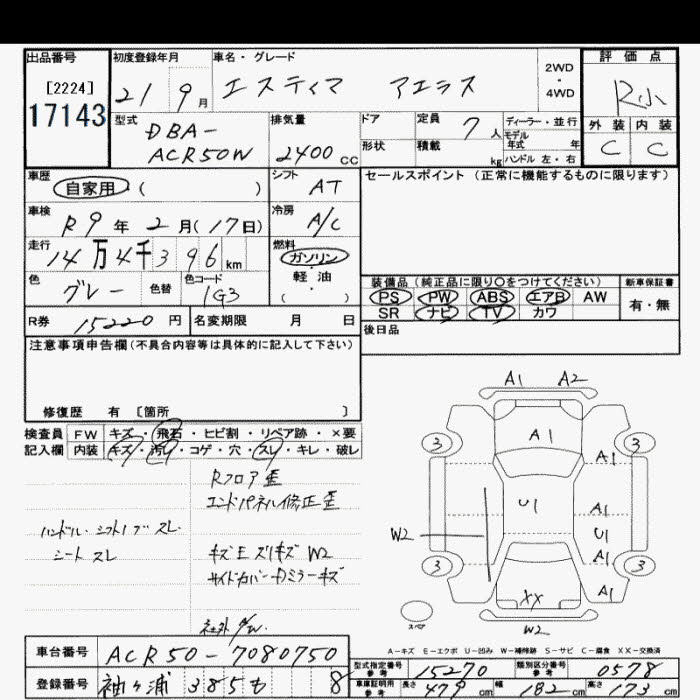 出品番号
[2224]
17143
初度登録年月
21 9月
車名・グレード
エスティマ アエラス
2WD
・
4WD
評価点
R小
外装 内装
C C
型式
DBA-
ACR50W
排気量
2400 cc
ドア
形状
定員 7人
積載 kg
ディーラー・並行
モデル
年式 年
ハンドル 左・右
車歴
自家用 ( )
シフト
AT
車検
R9年2月(17日)
冷房
A/C
走行
14万4千396km
燃料
ガソリン
軽油
( )
色
グレー
色替
色コード
1G3
R券 15220円
名変期限 月 日
セールスポイント(正常に機能するものに限ります)
装備品(純正品に限り○をつけてください)
PS PW ABS エアB AW
SR ナビ TV カワ
新車保証書
有・無
後日品
注意事項申告欄(不具合内容等は具体的に記入して下さい)
修復歴 有 [箇所 ]
検査員
記入欄
FW キズ・飛石・ヒビ割・リペア跡・×要
内装 キズ・汚レ・コゲ・穴・スレ・キレ・破レ
Rフロア歪
エンドパネル修正歪
ハンドル・シフトノブ スレ
シート スレ
キズ E ズリキズ W2
サイドカバー・Dミラーキズ
社外 A/W
A1 A2
A1
3 3
A1
U1
A1
U1
W2
A1
3 3
A1
XX
W2
スペア
A-キズ E-エクボ U-凹み W-補修跡 S-サビ C-腐食 XX-交換済
車台番号 ACR50-7080750
登録番号 袖ヶ浦 385 も 8
型式指定番号
参考
15270
類別区分番号
参考
0578
車庫証明用
参考
長さ 479cm 幅 182cm 高さ 173cm